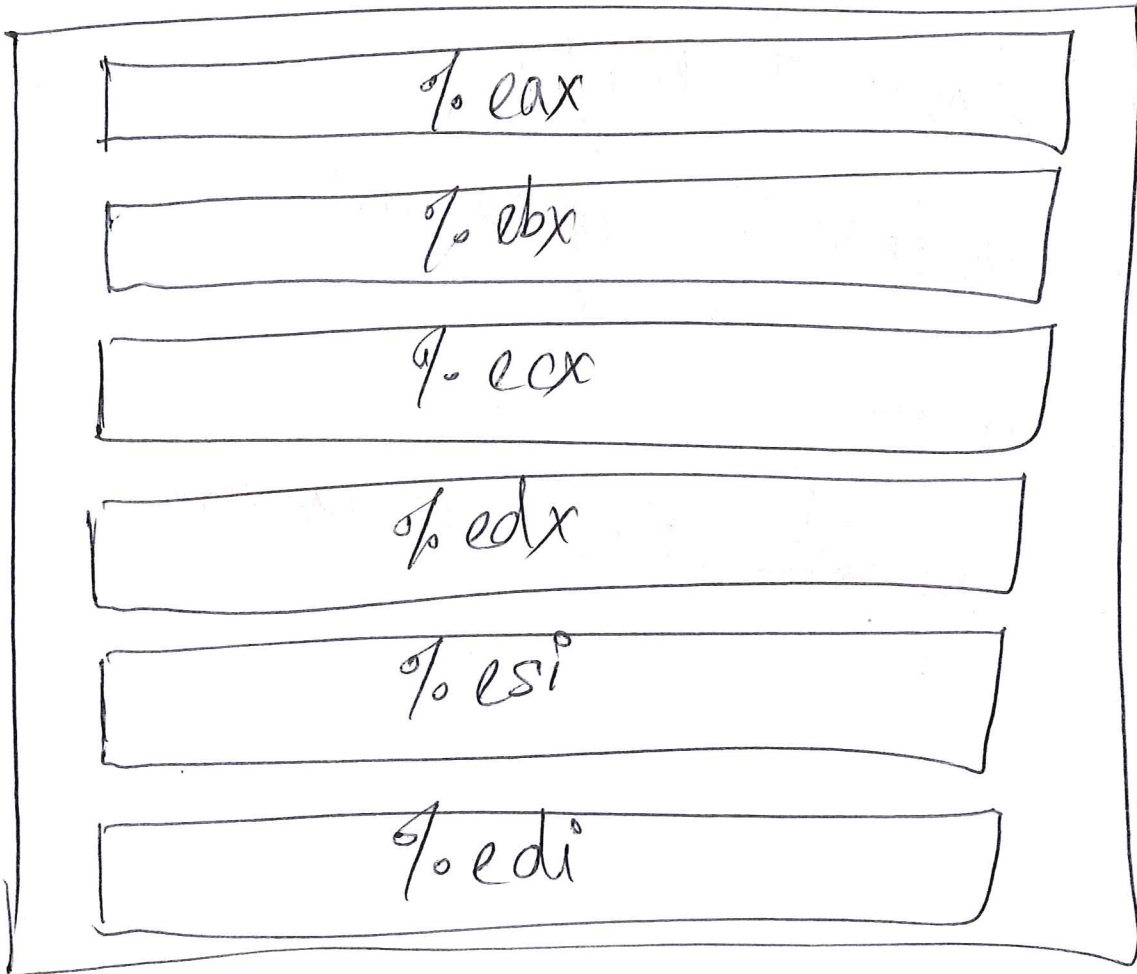 %eax
%ebx
%ecx
%edx
%esi
%edi